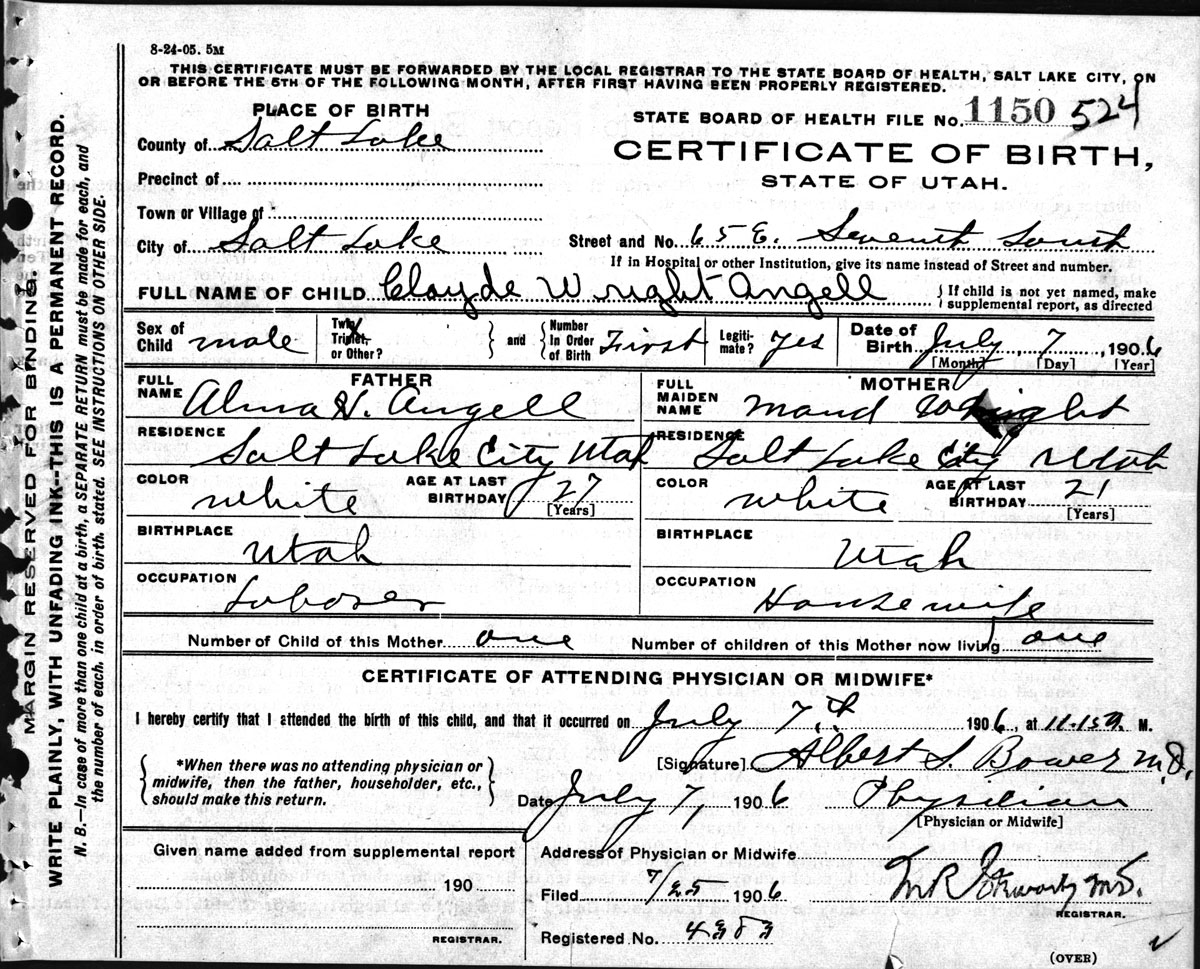 8-24-05. 5M
THIS CERTIFICATE MUST BE FORWARDED BY THE LOCAL REGISTRAR TO THE STATE BOARD OF HEALTH, SALT LAKE CITY, ON
OR BEFORE THE 5TH OF THE FOLLOWING MONTH, AFTER FIRST HAVING BEEN PROPERLY REGISTERED.
PLACE OF BIRTH
STATE BOARD OF HEALTH FILE No. 1150 524
County of Salt Lake
CERTIFICATE OF BIRTH,
Precinct of
STATE OF UTAH.
Town or Village of
City of Salt Lake Street and No. 65 E. Seventh South
If in Hospital or other Institution, give its name instead of Street and number.
FULL NAME OF CHILD Clayde Wright Angell { If child is not yet named, make supplemental report, as directed
Sex of Child male Twin, Triplet, or Other? } and { Number In Order of Birth First Legiti- mate? Yes Date of Birth July 7, 1906
[Month] [Day] [Year]
FATHER MOTHER
FULL NAME Alma H. Angell FULL MAIDEN NAME Maud Wright
RESIDENCE Salt Lake City Utah RESIDENCE Salt Lake City Utah
COLOR White AGE AT LAST BIRTHDAY 27 [Years] COLOR White AGE AT LAST BIRTHDAY 21 [Years]
BIRTHPLACE Utah BIRTHPLACE Utah
OCCUPATION Laborer OCCUPATION Housewife
Number of Child of this Mother one Number of children of this Mother now living one
CERTIFICATE OF ATTENDING PHYSICIAN OR MIDWIFE*
I hereby certify that I attended the birth of this child, and that it occurred on July 7th 1906, at 11-15 a. M.
{ *When there was no attending physician or midwife, then the father, householder, etc., should make this return. }
[Signature] Albert S. Bower M.D.
Date July 7, 1906 Physician
[Physician or Midwife]
Given name added from supplemental report
190
REGISTRAR.
Address of Physician or Midwife
Filed 1906 M.D.
REGISTRAR.
Registered No. 4353
(OVER)
MARGIN RESERVED FOR BINDING.
WRITE PLAINLY, WITH UNFADING INK--THIS IS A PERMANENT RECORD.
N. B.—In case of more than one child at a birth, a SEPARATE RETURN must be made for each, and
the number of each, in order of birth, stated. SEE INSTRUCTIONS ON OTHER SIDE.